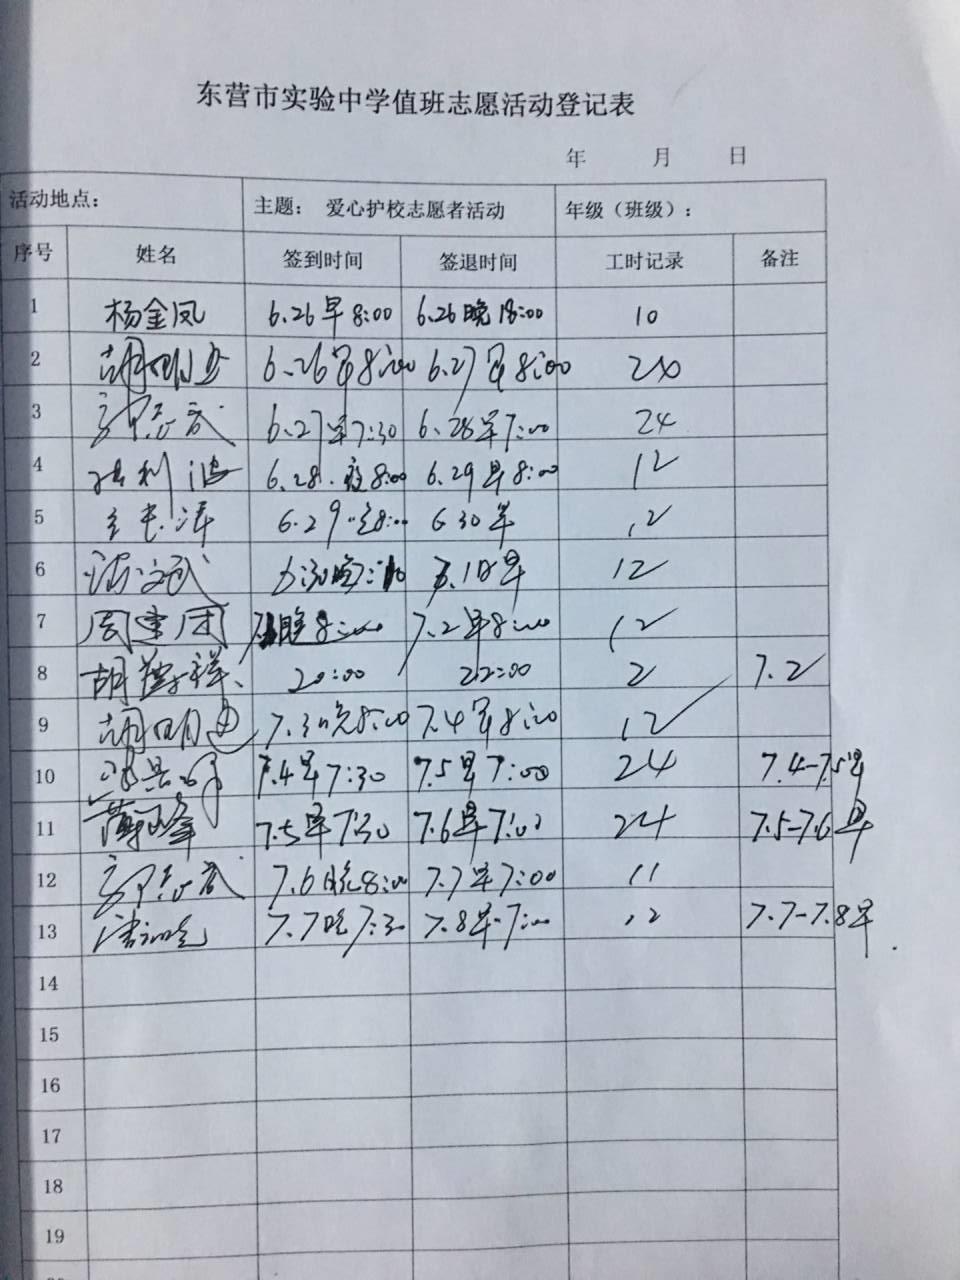 东营市实验中学值班志愿活动登记表
年 月 日
活动地点： 主题： 爱心护校志愿者活动 年级（班级）：
序号 姓名 签到时间 签退时间 工时记录 备注
1 杨金凤 6.26早8:00 6.26晚18:00 10
2 6.26早8:00 6.27早8:00
3 6.27早7:30 6.28早7:00 24
4 6.28.夜8:00 6.29早8:00 12
5 6.29 8:00 6.30早 12
6 早 12
7 周建团 晚8:00 7.2早8:00 12
8 20:00 22:00 2 7.2
9 7.3晚8:00 7.4早8:00 12
10 7.4早7:30 7.5早7:00 24 7.4-7.5早
11 7.5早7:30 7.6早7:00 24 7.5-7.6早
12 7.6晚8:00 7.7早7:00 11
13 7.7晚7:30 7.8早7:00 12 7.7-7.8早
14
15
16
17
18
19